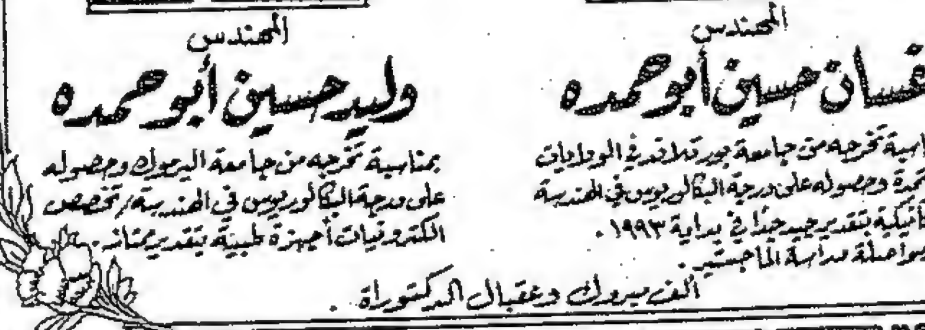 المهندس
غسان حسين أبو حمده
بمناسبة تخرجه من جامعة بورتلاند في الولايات
المتحدة وحصوله على درجة البكالوريوس في الهندسة
بتقدير جيد جداً في بداية ١٩٩٣.
دراسة الماجستير.
المهندس
وليد حسين أبو حمده
بمناسبة تخرجه من جامعة اليرموك وحصوله
على درجة البكالوريوس في الهندسة/تخصص
الكترونيات أجهزة طبية بتقدير ممتاز.
ألف مبروك وعقبال الدكتوراة.